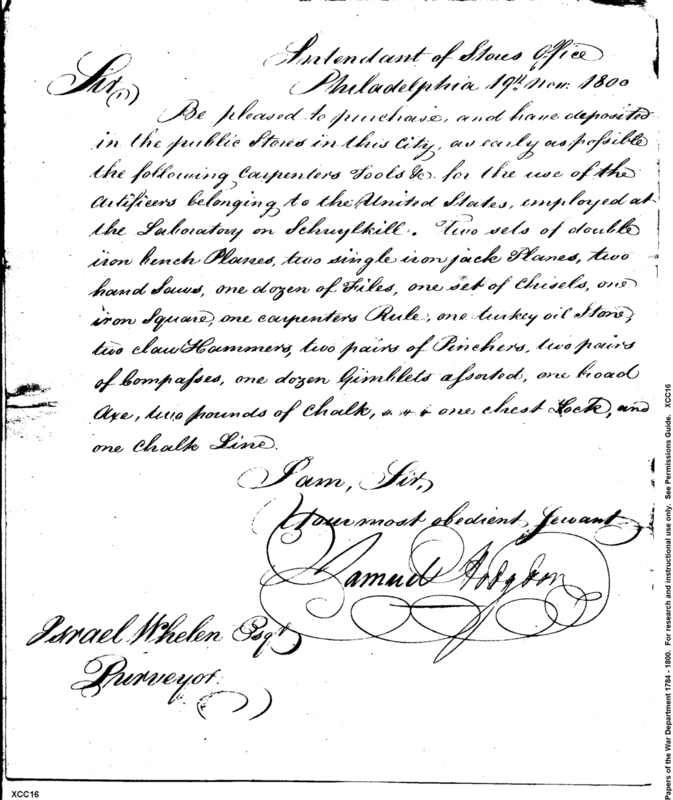 Intendant of Stores Office
Philadelphia 19th Nov: 1800
Sir,
Be pleased to purchase, and have deposited
in the public Stores in this City, as early as possible
the following Carpenters Tools &c. for the use of the
Artificers belonging to the United States, employed at
the Laboratory on Schuylkill. Two sets of double
iron bench Planes, two single iron jack Planes, two
hand Saws, one dozen of Files, one set of Chisels, one
iron Square, one carpenters Rule, one turkey oil Stone,
two claw Hammers, two pairs of Pinchers, two pairs
of Compasses, one dozen Gimblets assorted, one broad
Axe, two pounds of Chalk, one chest Lock, and
one Chalk Line.
I am, Sir,
Your most obedient Servant
Samuel Hodgdon
Israel Whelen Esqr
Purveyor.
XCC16
Papers of the War Department 1784 - 1800. For research and instructional use only. See Permissions Guide. XCC16